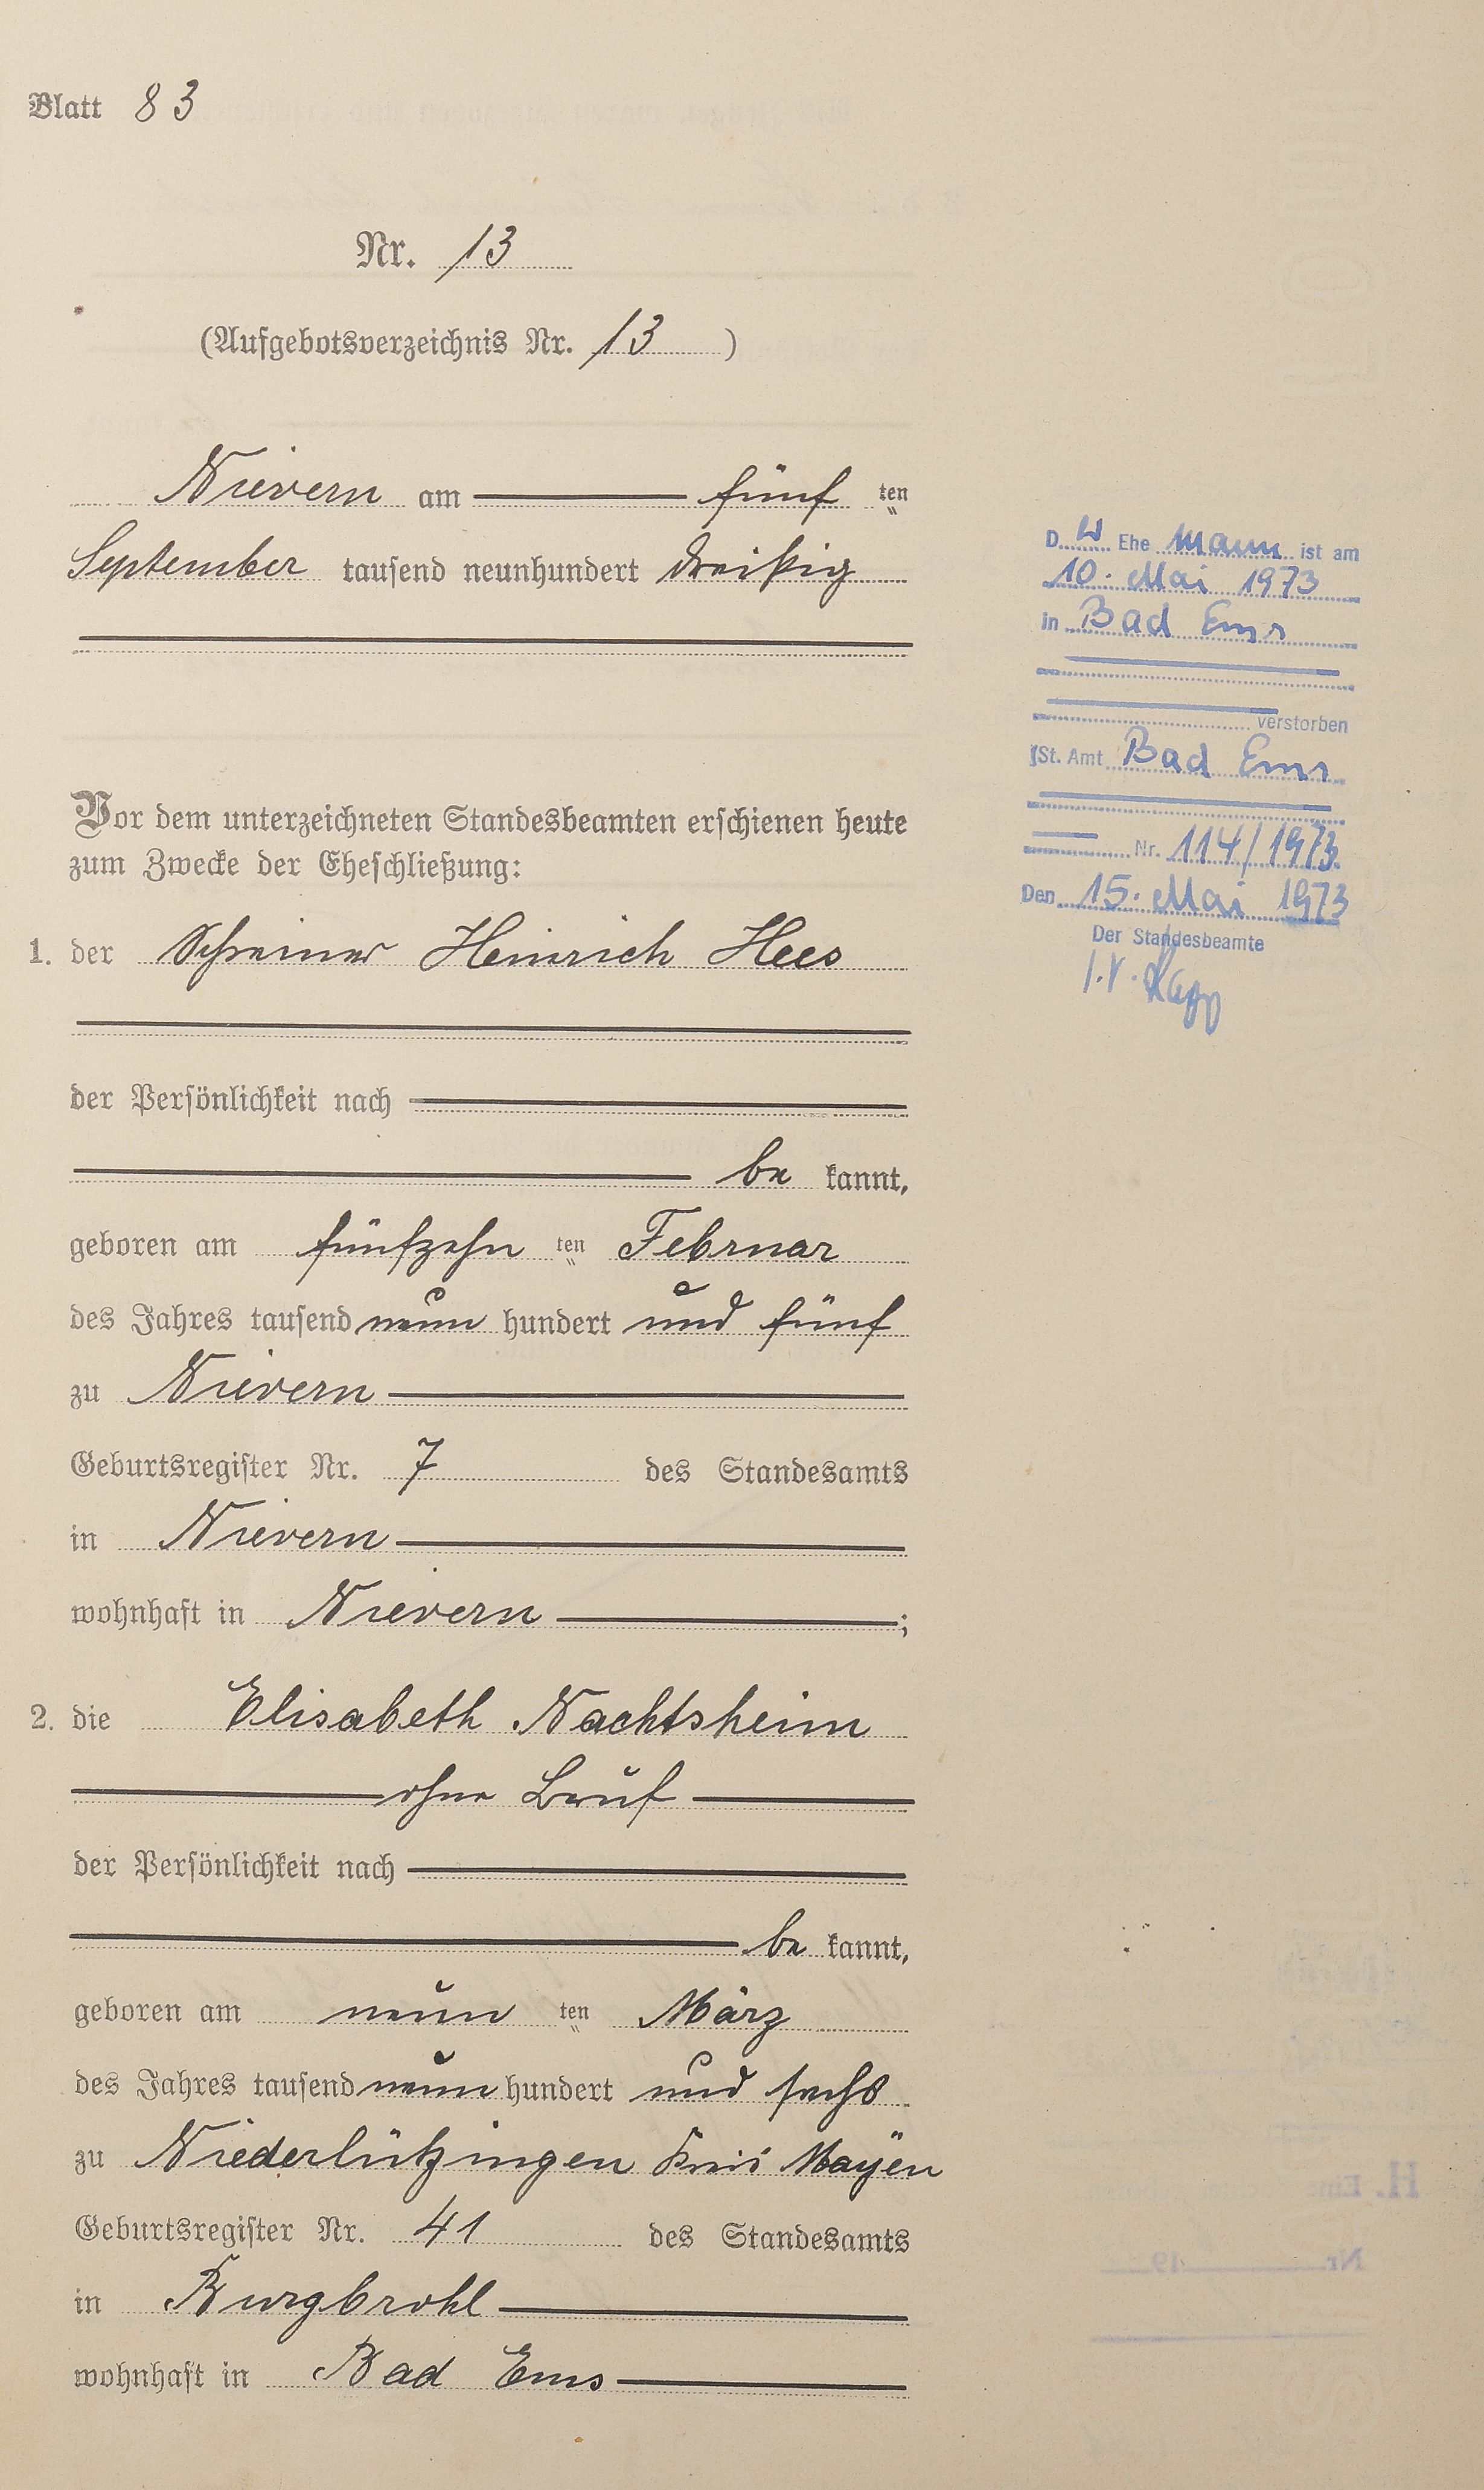 Blatt 83
Nr. 13
(Aufgebotsverzeichnis Nr. 13 )
Nievern am fünf ten
September tausend neunhundert dreißig
Vor dem unterzeichneten Standesbeamten erschienen heute
zum Zwecke der Eheschließung:
1. der Schreiner Heinrich Hees
der Persönlichkeit nach
be kannt,
geboren am fünfzehn ten Februar
des Jahres tausend neun hundert und fünf
zu Nievern
Geburtsregister Nr. 7 des Standesamts
in Nievern
wohnhaft in Nievern ;
2. die Elisabeth Nachtsheim
ohne Beruf
der Persönlichkeit nach
be kannt,
geboren am neun ten März
des Jahres tausend neun hundert und sechs
zu Niederlützingen Kreis Mayen
Geburtsregister Nr. 41 des Standesamts
in Burgbrohl
wohnhaft in Bad Ems
D Ehe mann ist am
10. Mai 1973
in Bad Ems
verstorben
(St. Amt Bad Ems
Nr. 114/1973
Den 15. Mai 1973
Der Standesbeamte
I.V.